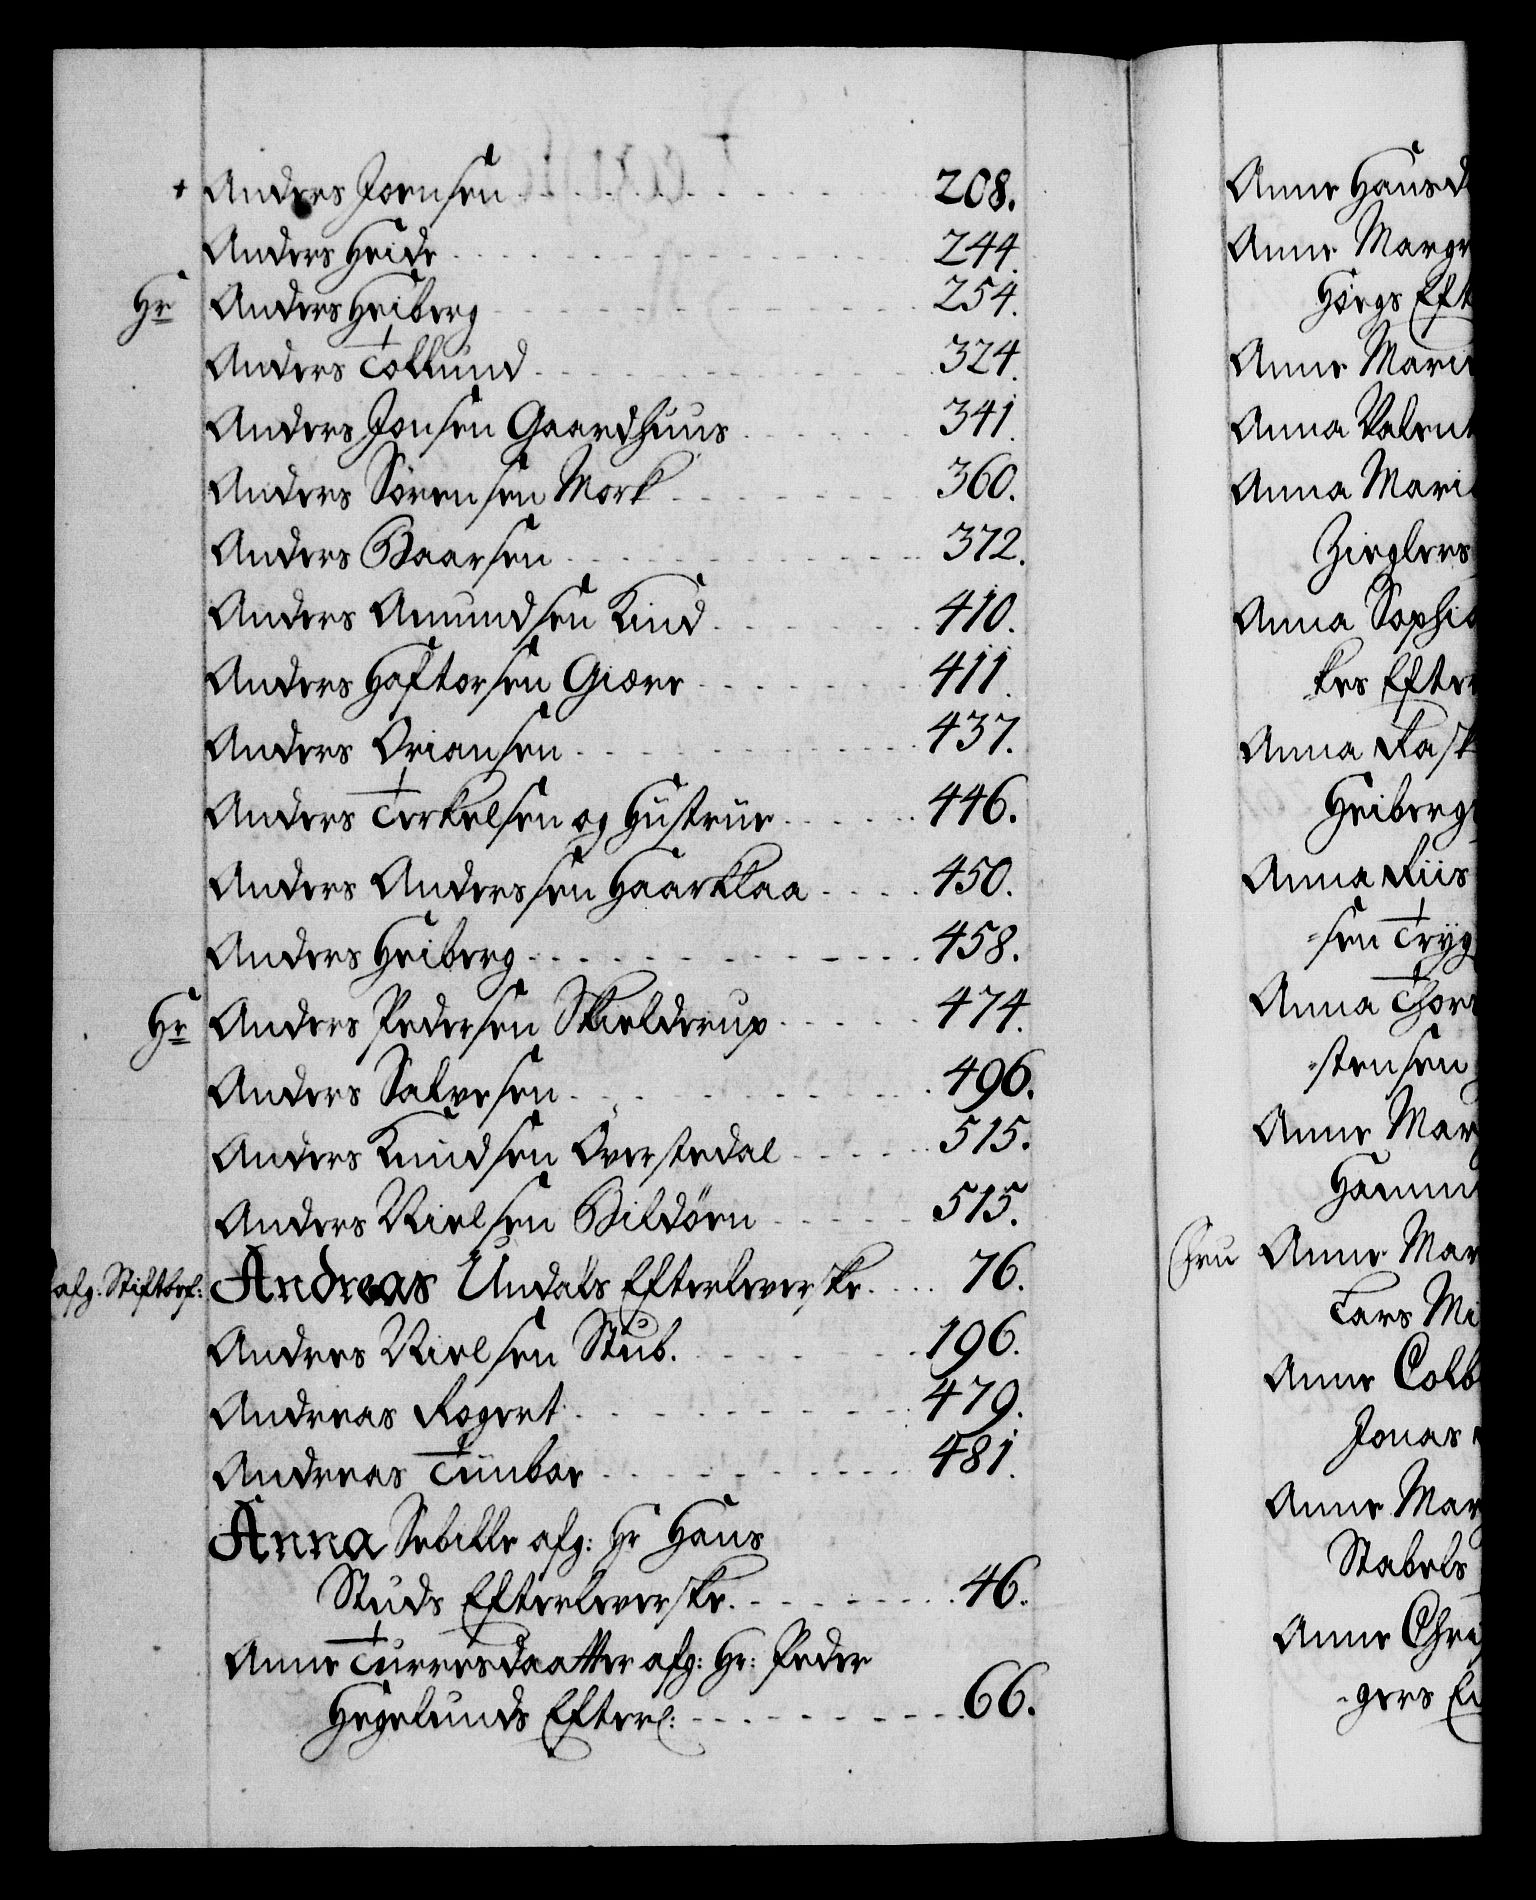 + Anders Joensen 208.
Anders Heide 244.
Hr Anders Heiberg 254.
Anders Tollund 324.
Anders Jonsen Gaardhuus 341.
Anders Sörensen Mork 360.
Anders Baarsen 372.
Anders Amundsen Lind 410.
Anders Haftorsen Giære 411.
Anders Oriansen 437.
Anders Terkelsen og Hustrue 446.
Anders Anderssen Haarklaa 450.
Anders Heiberg 458.
Hr Anders Pedersen Skielderup 474.
Anders Salvesen 496.
Anders Knudsen Överstedal 515.
Anders Nielsen Bildöen 515.
afg: Stiftbef: Andreas Undals Efterleverske 76.
Andres Nielsen Stub. 196.
Andreas Rogert 479.
Andreas Tünboe 481.
Anna Sebille afg: Hr Hans
Studs Efterleverske. 46.
Anne Turresdaatter afg: Hr: Peder
Hegelunds Efterl: 66.
Anne Hansd
Anne Margr
Höegs Eft
Anne Mari
Anna Valent
Anna Mari
Zieglers
Anna Sophi
kes Efter
Anna Rask
Heiberg
Anna Riis
-sen Tryg
Anna Thor
-stensen
Anne Mar
Hamm
Fru Anne Mar
Lars Mi
Anne Colb
Jonas
Anne Mar
Stabels
Anne Chri
-gers